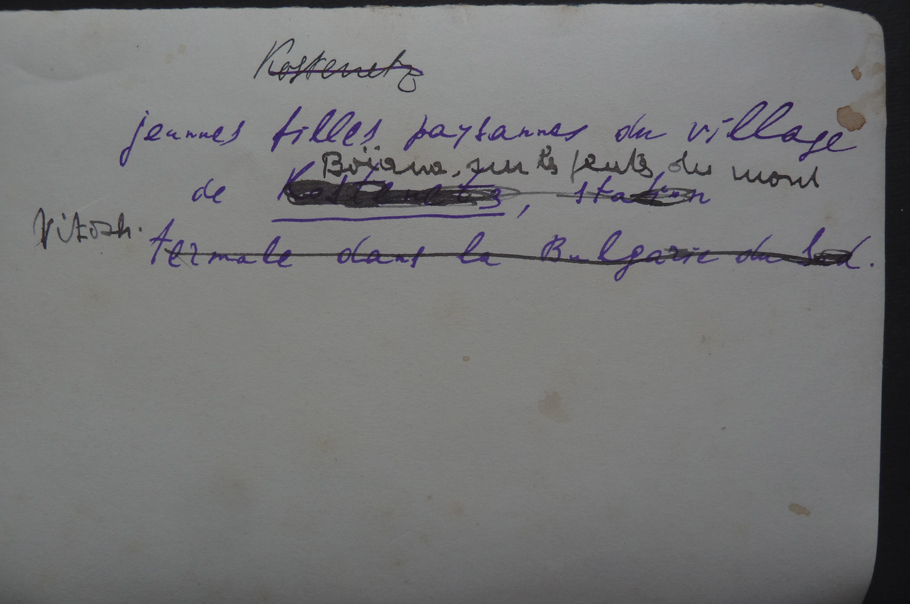 Kostenetz
jeunnes filles paysannes du village
Boïana, sur les pents du mont
de Kostenetz, station
Vitosh.
termale dans la Bulgarie du Sud.